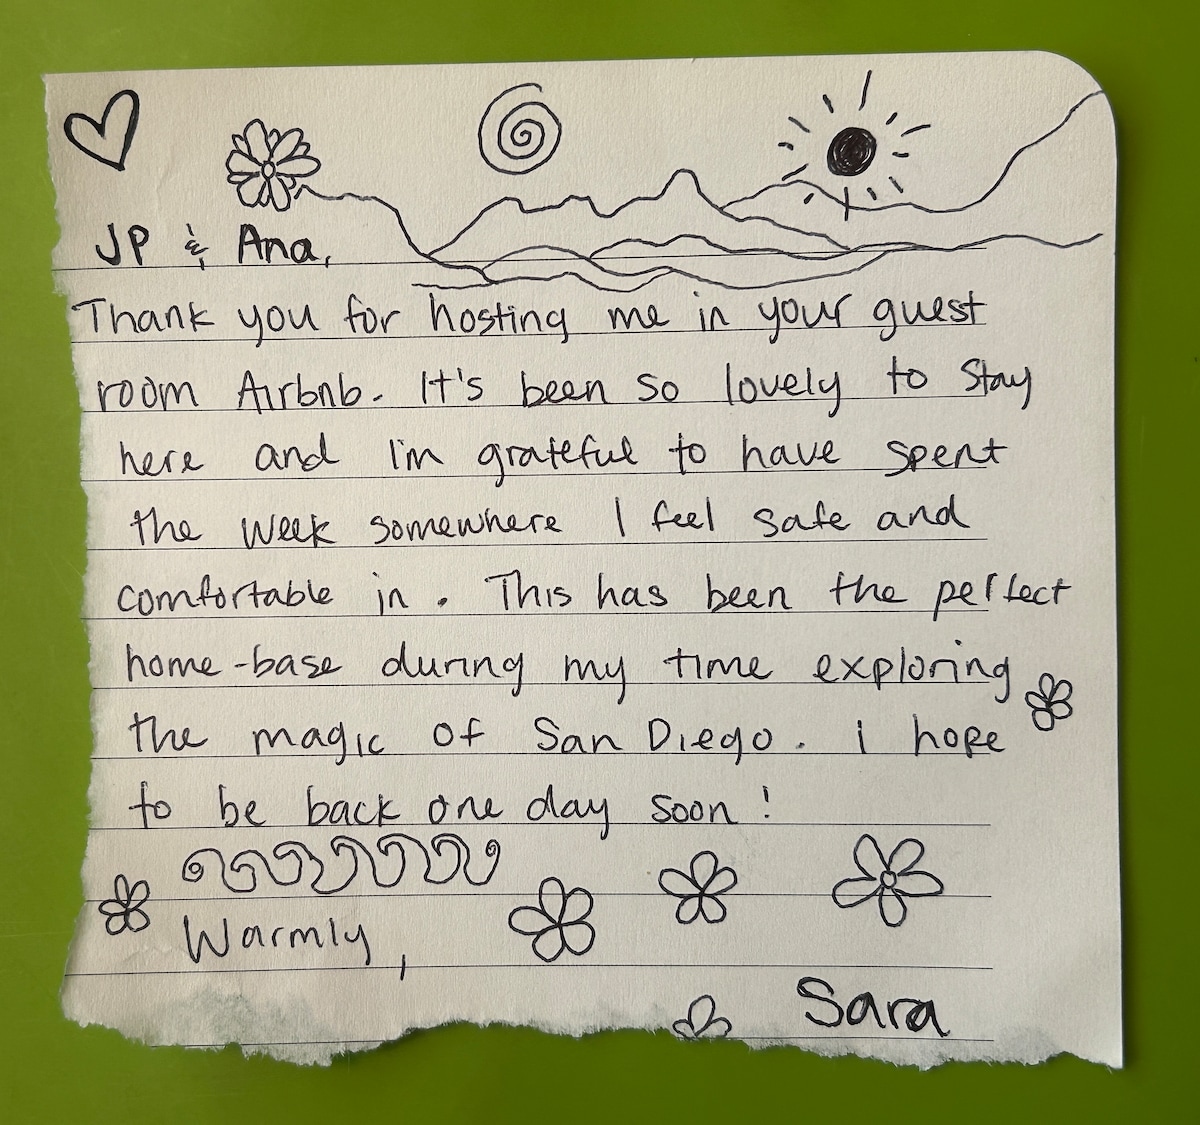 JP & Ana,
Thank you for hosting me in your guest
room Airbnb. It's been so lovely to stay
here and I'm grateful to have spent
the week somewhere I feel safe and
comfortable in. This has been the perfect
home-base during my time exploring
the magic of San Diego. I hope
to be back one day soon!
Warmly,
Sara